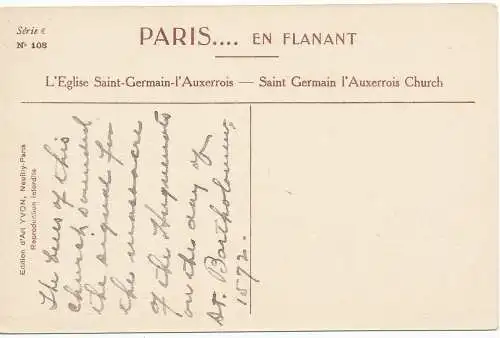 Série 6
Nº 108
PARIS.... EN FLANANT
L'Eglise Saint-Germain-l'Auxerrois — Saint Germain l'Auxerrois Church
Edition d'Art YVON, Neuilly-Paris
Reproduction Interdite
The bells of this
church sounded
the signal for
the massacre
of the Huguenots
on the day of
St. Bartholomew,
1572.